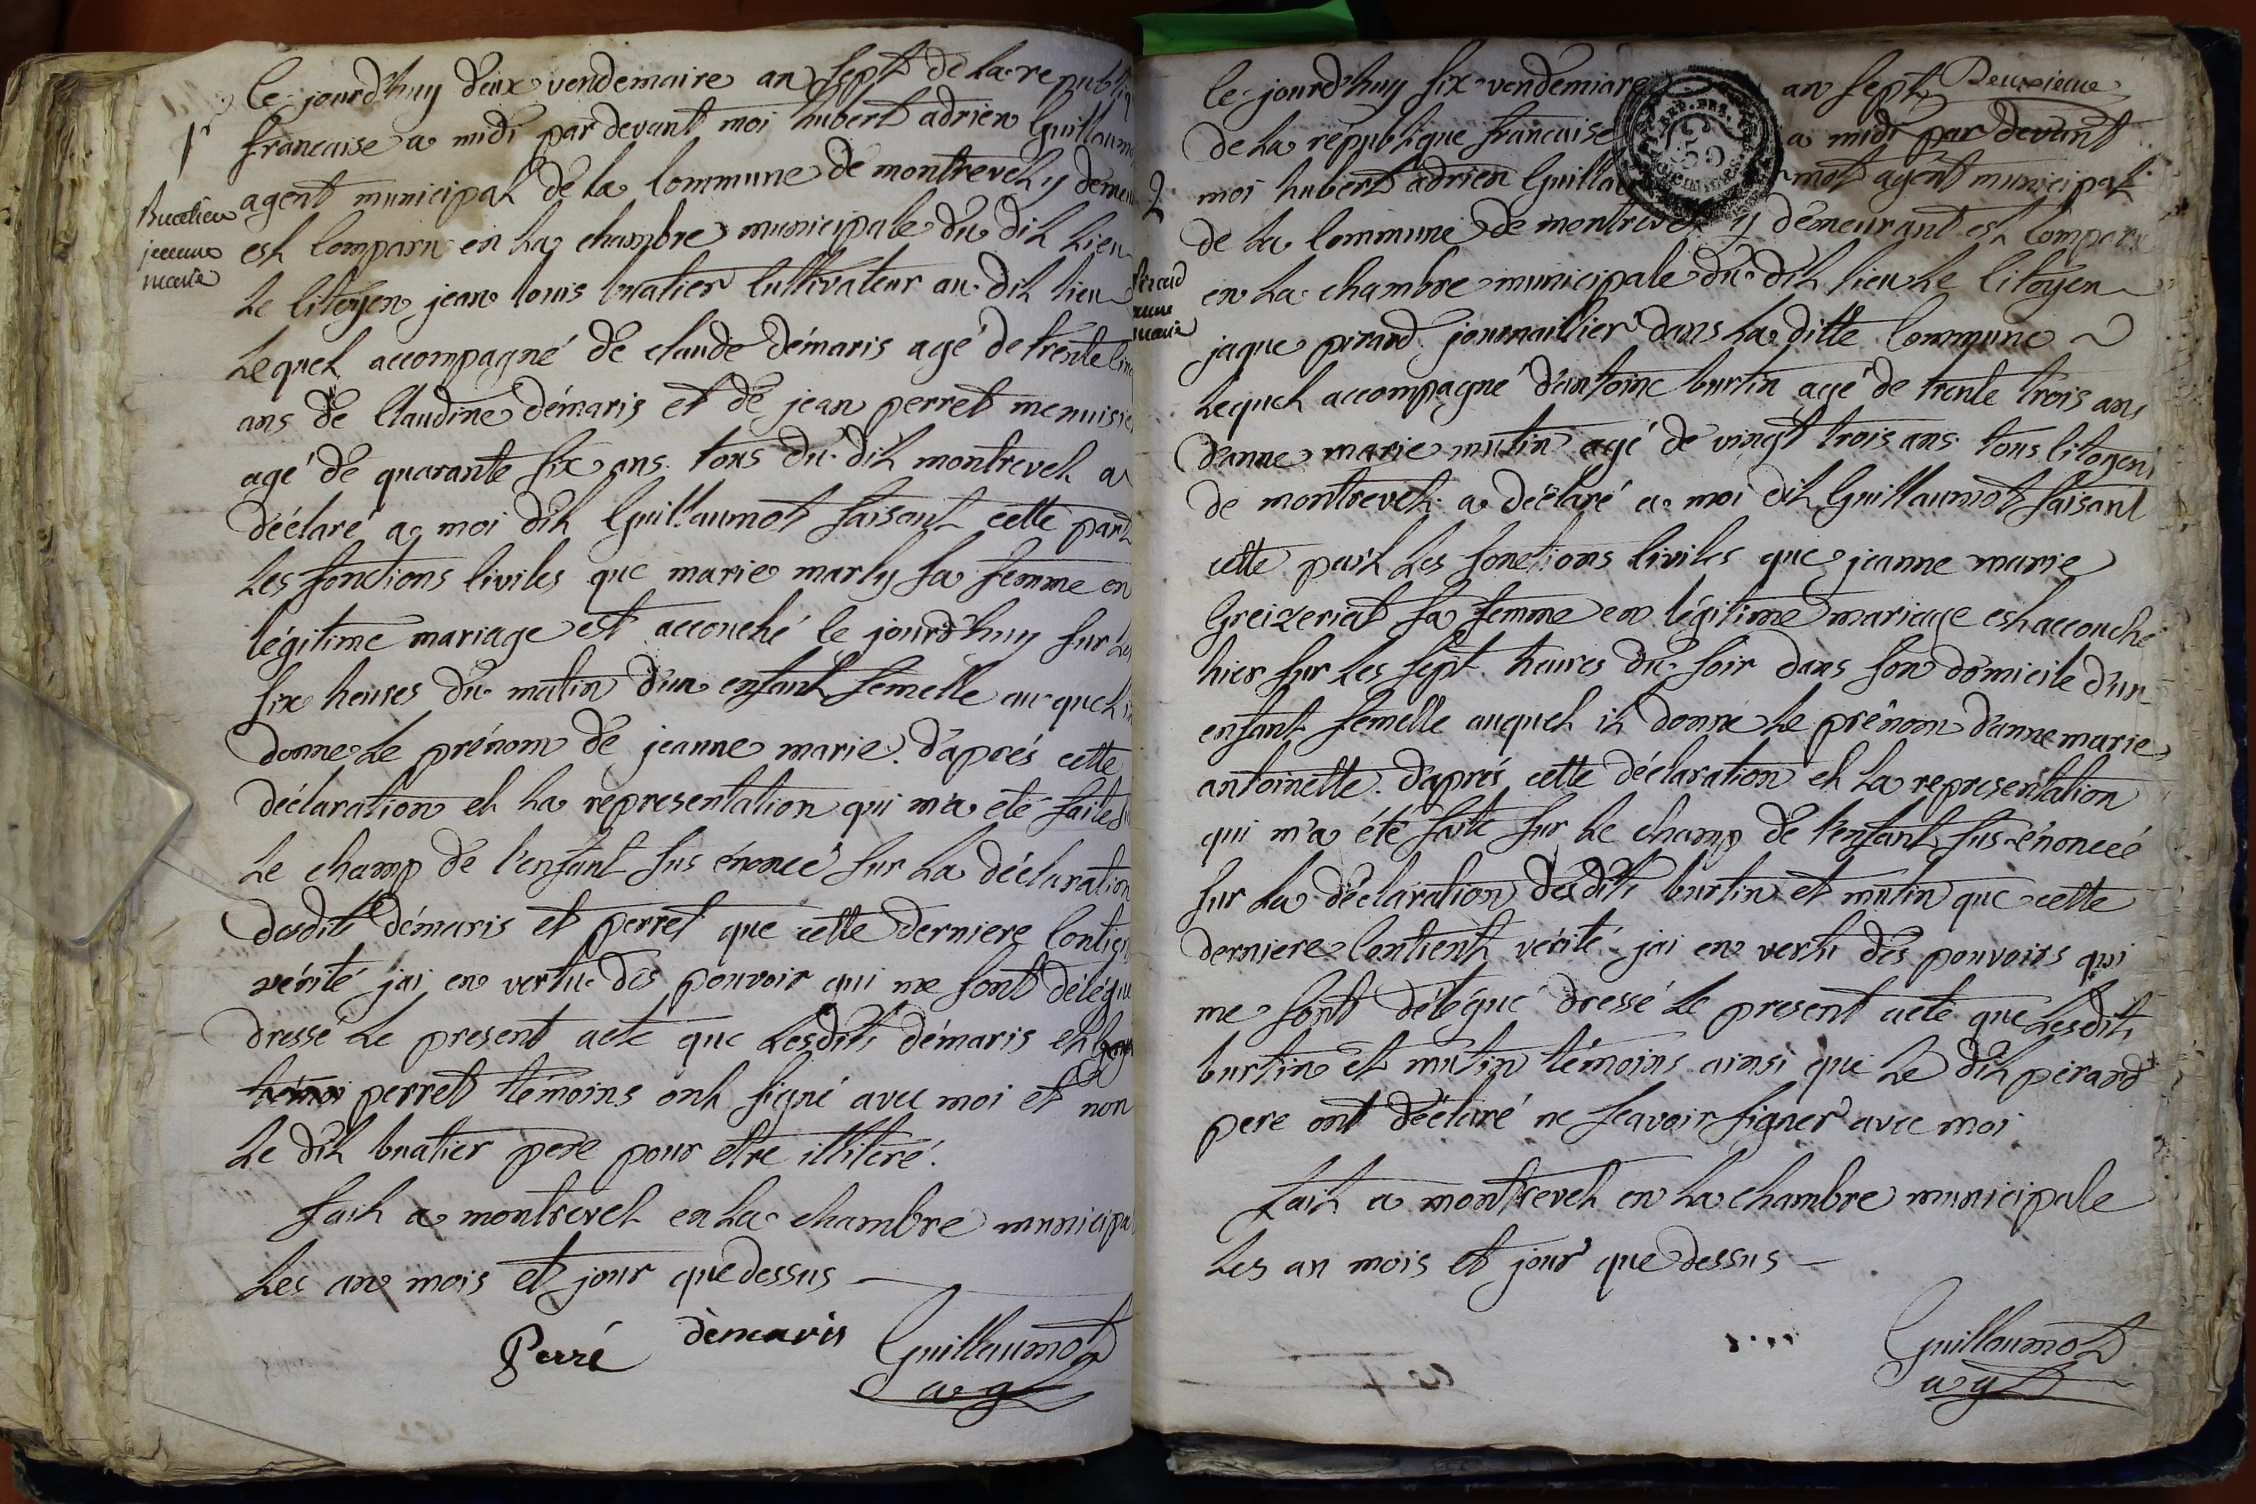 le jourd'huy deux vendemaire an sept de la republiq
francaise a midi par devant moi hubert adrien Guillaum
1r
agent municipal de la Commune de montrevel y demeu
Buatier
jeanne
marie
est Comparu en la chambre municipale du dit lieu
Le Citoyen jean louis buatier Cultivateur au dit lieu
Lequel accompagné de claude démaris agé de trente Cinq
ans de Claudine démaris et de jean perret menuisie
agé de quarante six ans tous du dit montrevel a
déclaré a moi dit Guillaumot faisant cette part
Les fonctions Civiles que marie marly sa femme en
légitime mariage est accouché le jourd'huy sur Les
six heures du matin d'un enfant femelle au quel il
donne Le prénom de jeanne marie. d'aprés cette
déclaration et La representation qui m'a eté faite s
Le champ de l'enfant sus énoncé sur La déclaration
desdits démaris et perret que cette derniere Contien
vérité jai en vertu des pouvoir qui me sont délégué
dressé Le present acte que Lesdits démaris et
perret témoins ont signé avec moi et non
Le dit buatier pere pour etre illiteré.
fait a montrevel en La chambre municipal
Les an mois et jour que dessus
Perré démaris Guillaumot
agt
le jourd'huy six vendemiare an sept Deuxieme
de La république francaise a midi par devant
2
moi hubert adrien Guillaumot agent municipal
de La Commune de montrevel y demeurant est Comparu
pirard
anne
marie
en La chambre municipale du dit lieu Le Citoyen
jaque pirard journaillier dans La ditte Commune
Lequel accompagné d'antoine burtin agé de trente trois ans
d'anne marie mutin agé de vingt trois ans tous Citoyens
de montrevel a déclaré a moi dit Guillaumot faisant
cette part Les fonctions Civiles que jeanne marie
Greizeriat sa femme en légitime mariage est accouché
hier sur Les sept heures du soir dans son domicile d'un
enfant femelle auquel il donne Le prénom d'anne marie
antoinette. d'aprés cette déclaration et La representation
qui m'a été faite sur Le champ de l'enfant sus énoncé
sur La déclaration desdits burtin et mutin que cette
derniere Contient vérité jai en vertu des pouvoirs qui
me sont délégué dressé Le present acte que Lesdits
burtin et mutin témoins ainsi que Le dit pirard
pere ont déclaré ne scavoir signer avec moi
fait a montrevel en La chambre municipale
Les an mois et jour que dessus
Guillaumot
agt